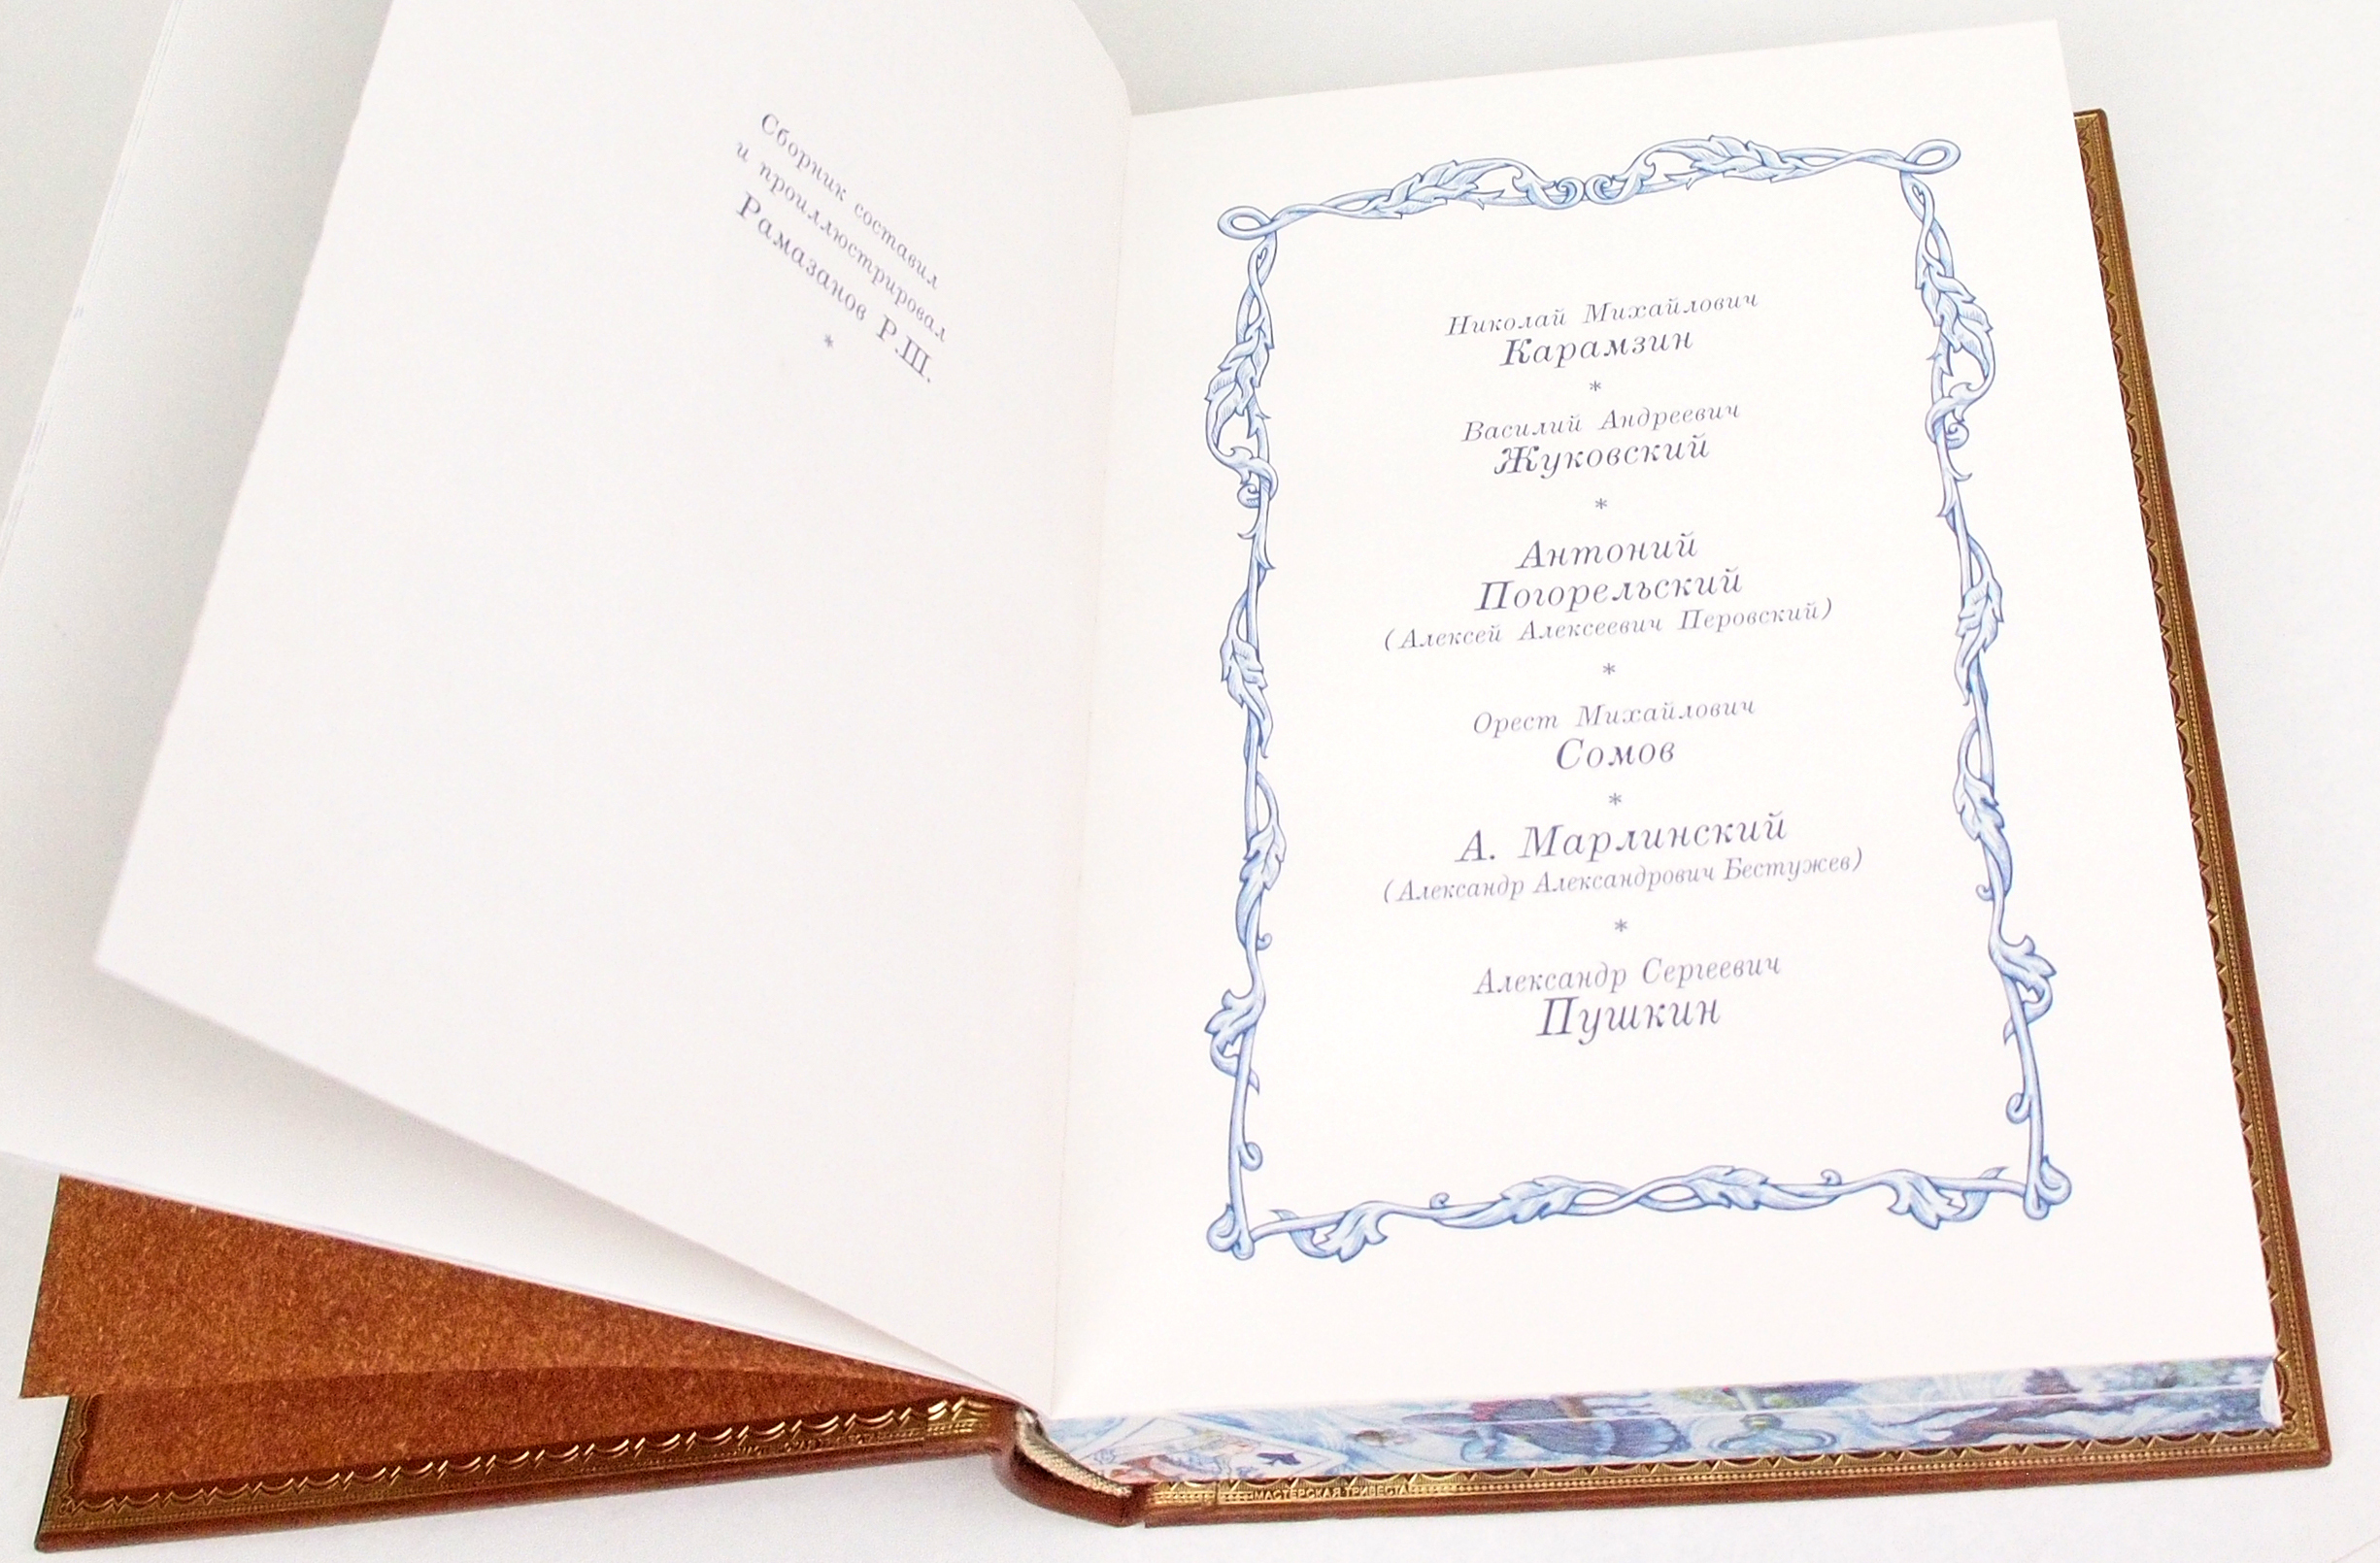 Сборник составил
и проиллюстрировал
Рамазанов Р.Ш.
*
Николай Михайлович
Карамзин
*
Василий Андреевич
Жуковский
*
Антоний
Погорельский
(Алексей Алексеевич Перовский)
*
Орест Михайлович
Сомов
*
А. Марлинский
(Александр Александрович Бестужев)
*
Александр Сергеевич
Пушкин
МАСТЕРСКАЯ ТРИВЕСТА